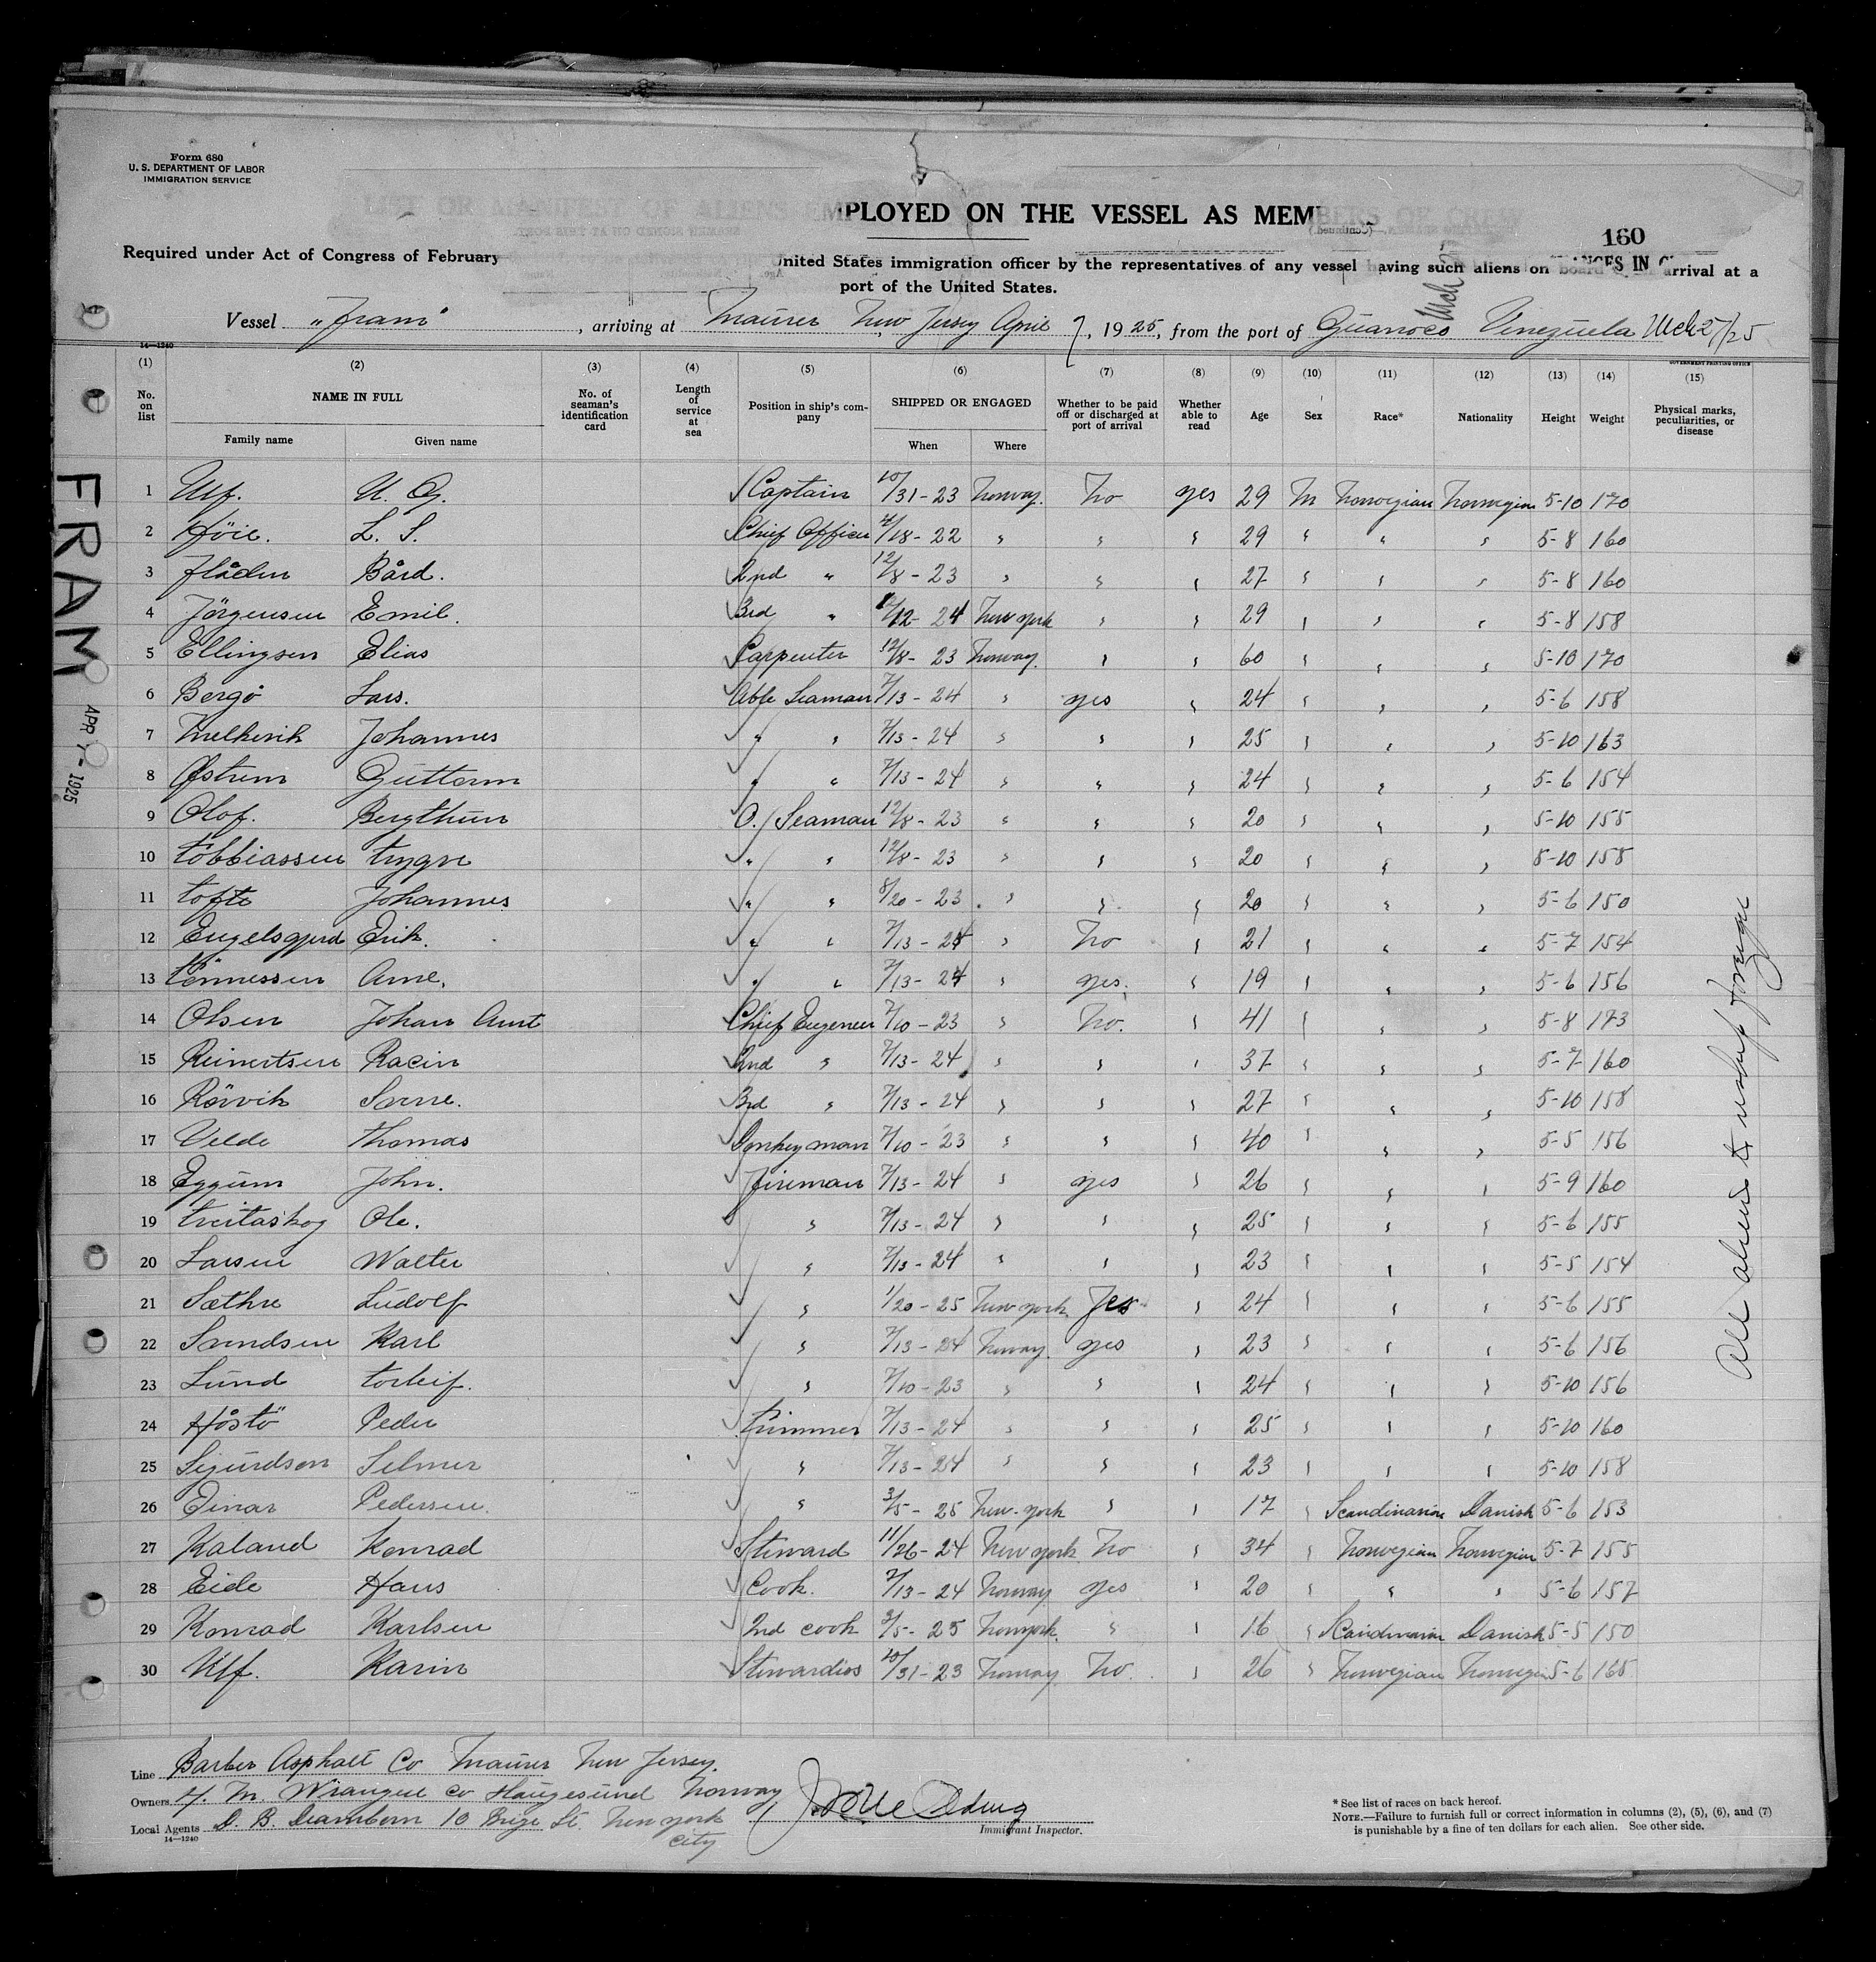 Form 680
U. S. DEPARTMENT OF LABOR
IMMIGRATION SERVICE
LIST OR MANIFEST OF ALIENS EMPLOYED ON THE VESSEL AS MEMBERS OF CREW
160
Required under Act of Congress of February United States immigration officer by the representatives of any vessel having such aliens on board arrival at a
port of the United States.
Vessel "Fram", arriving at Maurer New Jersey April 7, 1925, from the port of Guanoco Venezuela Mch 27/25
14—1240
GOVERNMENT PRINTING OFFICE
(1) (2) (3) (4) (5) (6) (7) (8) (9) (10) (11) (12) (13) (14) (15)
No. on list NAME IN FULL No. of seaman's identification card Length of service at sea Position in ship's company SHIPPED OR ENGAGED Whether to be paid off or discharged at port of arrival Whether able to read Age Sex Race* Nationality Height Weight Physical marks, peculiarities, or disease
Family name Given name When Where
1 Ulf. U. G. Captain 10/31-23 Norway. No yes 29 M Norwegian Norwegian 5-10 170
2 Höie. L. S. Chief Officer 4/18-22 " " " 29 " " " 5-8 160
3 Flåden Bård. 2nd " 12/8-23 " " " 27 " " " 5-8 160
4 Jörgensen Emil. 3rd " 12-24 New York " " 29 " " " 5-8 158
5 Ellingsen Elias Carpenter 12/8-23 Norway. " " 60 " " " 5-10 170
6 Bergö Lars. Able Seaman 7/13-24 " yes " 24 " " " 5-6 158
7 Melkevik Johannes " " 7/13-24 " " " 25 " " " 5-10 163
8 Østrem Guttorm " " 7/13-24 " " " 24 " " " 5-6 154
9 Olof. Bergthun O. Seaman 12/8-23 " " " 20 " " " 5-10 155
10 Tobbiassen Trygve " " 12/8-23 " " " 20 " " " 5-10 158
11 Tofte Johannes " " 8/20-23 " " " 20 " " " 5-6 150
12 Engelsgjerd Erik. " " 7/13-24 " No " 21 " " " 5-7 154
13 Tönnessen Arne. " " 7/13-24 " yes. " 19 " " " 5-6 156
14 Olsen Johan Arnt Chief Engeneer 7/10-23 " No. " 41 " " " 5-8 173
15 Reinertsen Racin 2nd " 7/13-24 " " " 37 " " " 5-7 160
16 Rörvik Sverre. 3rd " 7/13-24 " " " 27 " " " 5-10 158
17 Velde Thomas Donkeyman 7/10-23 " " " 40 " " " 5-5 156
18 Eggum John. Fireman 7/13-24 " yes " 26 " " " 5-9 160
19 Treitaskog Ole. " 7/13-24 " " " 25 " " " 5-6 155
20 Larsen Walter " 7/13-24 " " " 23 " " " 5-5 154
21 Sæthre Ludolf " 1/20-25 New York Yes " 24 " " " 5-6 155
22 Svendsen Karl " 7/13-24 Norway. yes " 23 " " " 5-6 156
23 Lund Torleif. " 7/10-23 " " " 24 " " " 5-10 156
24 Håstö Peder Trimmer 7/13-24 " " " 25 " " " 5-10 160
25 Sigurdson Selmer " 7/13-24 " " " 23 " " " 5-10 158
26 Einar Pedersen. " 3/5-25 New-York " " 17 " Scandinavian Danish 5-6 153
27 Kaland Konrad Steward 11/26-24 New York No " 34 " Norwegian Norwegian 5-7 155
28 Eide Hans Cook. 7/13-24 Norway yes " 20 " " " 5-6 157
29 Konrad Karlsen 2nd cook 3/5-25 New York. " " 16 " Scandinavian Danish 5-5 150
30 Ulf. Karin Stewardies 10/31-23 Norway No. " 26 " Norwegian Norwegian 5-6 165
FRAM
APR 7-1925
All aliens to reship foreign
Line Barber Asphalt Co Maurer New Jersey.
Owners H. M. Wrangell Co Haugesund Norway
Local Agents D. B. Dearborn 10 Brige St. New York
City
14—1240
Immigrant Inspector.
* See list of races on back hereof.
NOTE.—Failure to furnish full or correct information in columns (2), (5), (6), and (7)
is punishable by a fine of ten dollars for each alien. See other side.